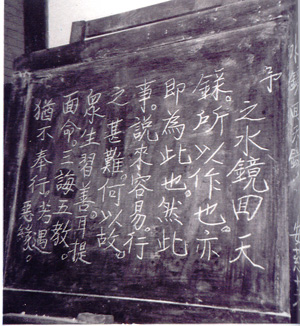 予之水鏡回天
錄。所以作也。亦
即為此也。然此
事。說來容易。行
之甚難。何以故。
眾生習善。耳提
面命。三誨五教。
猶不奉行。若遇
惡緣。